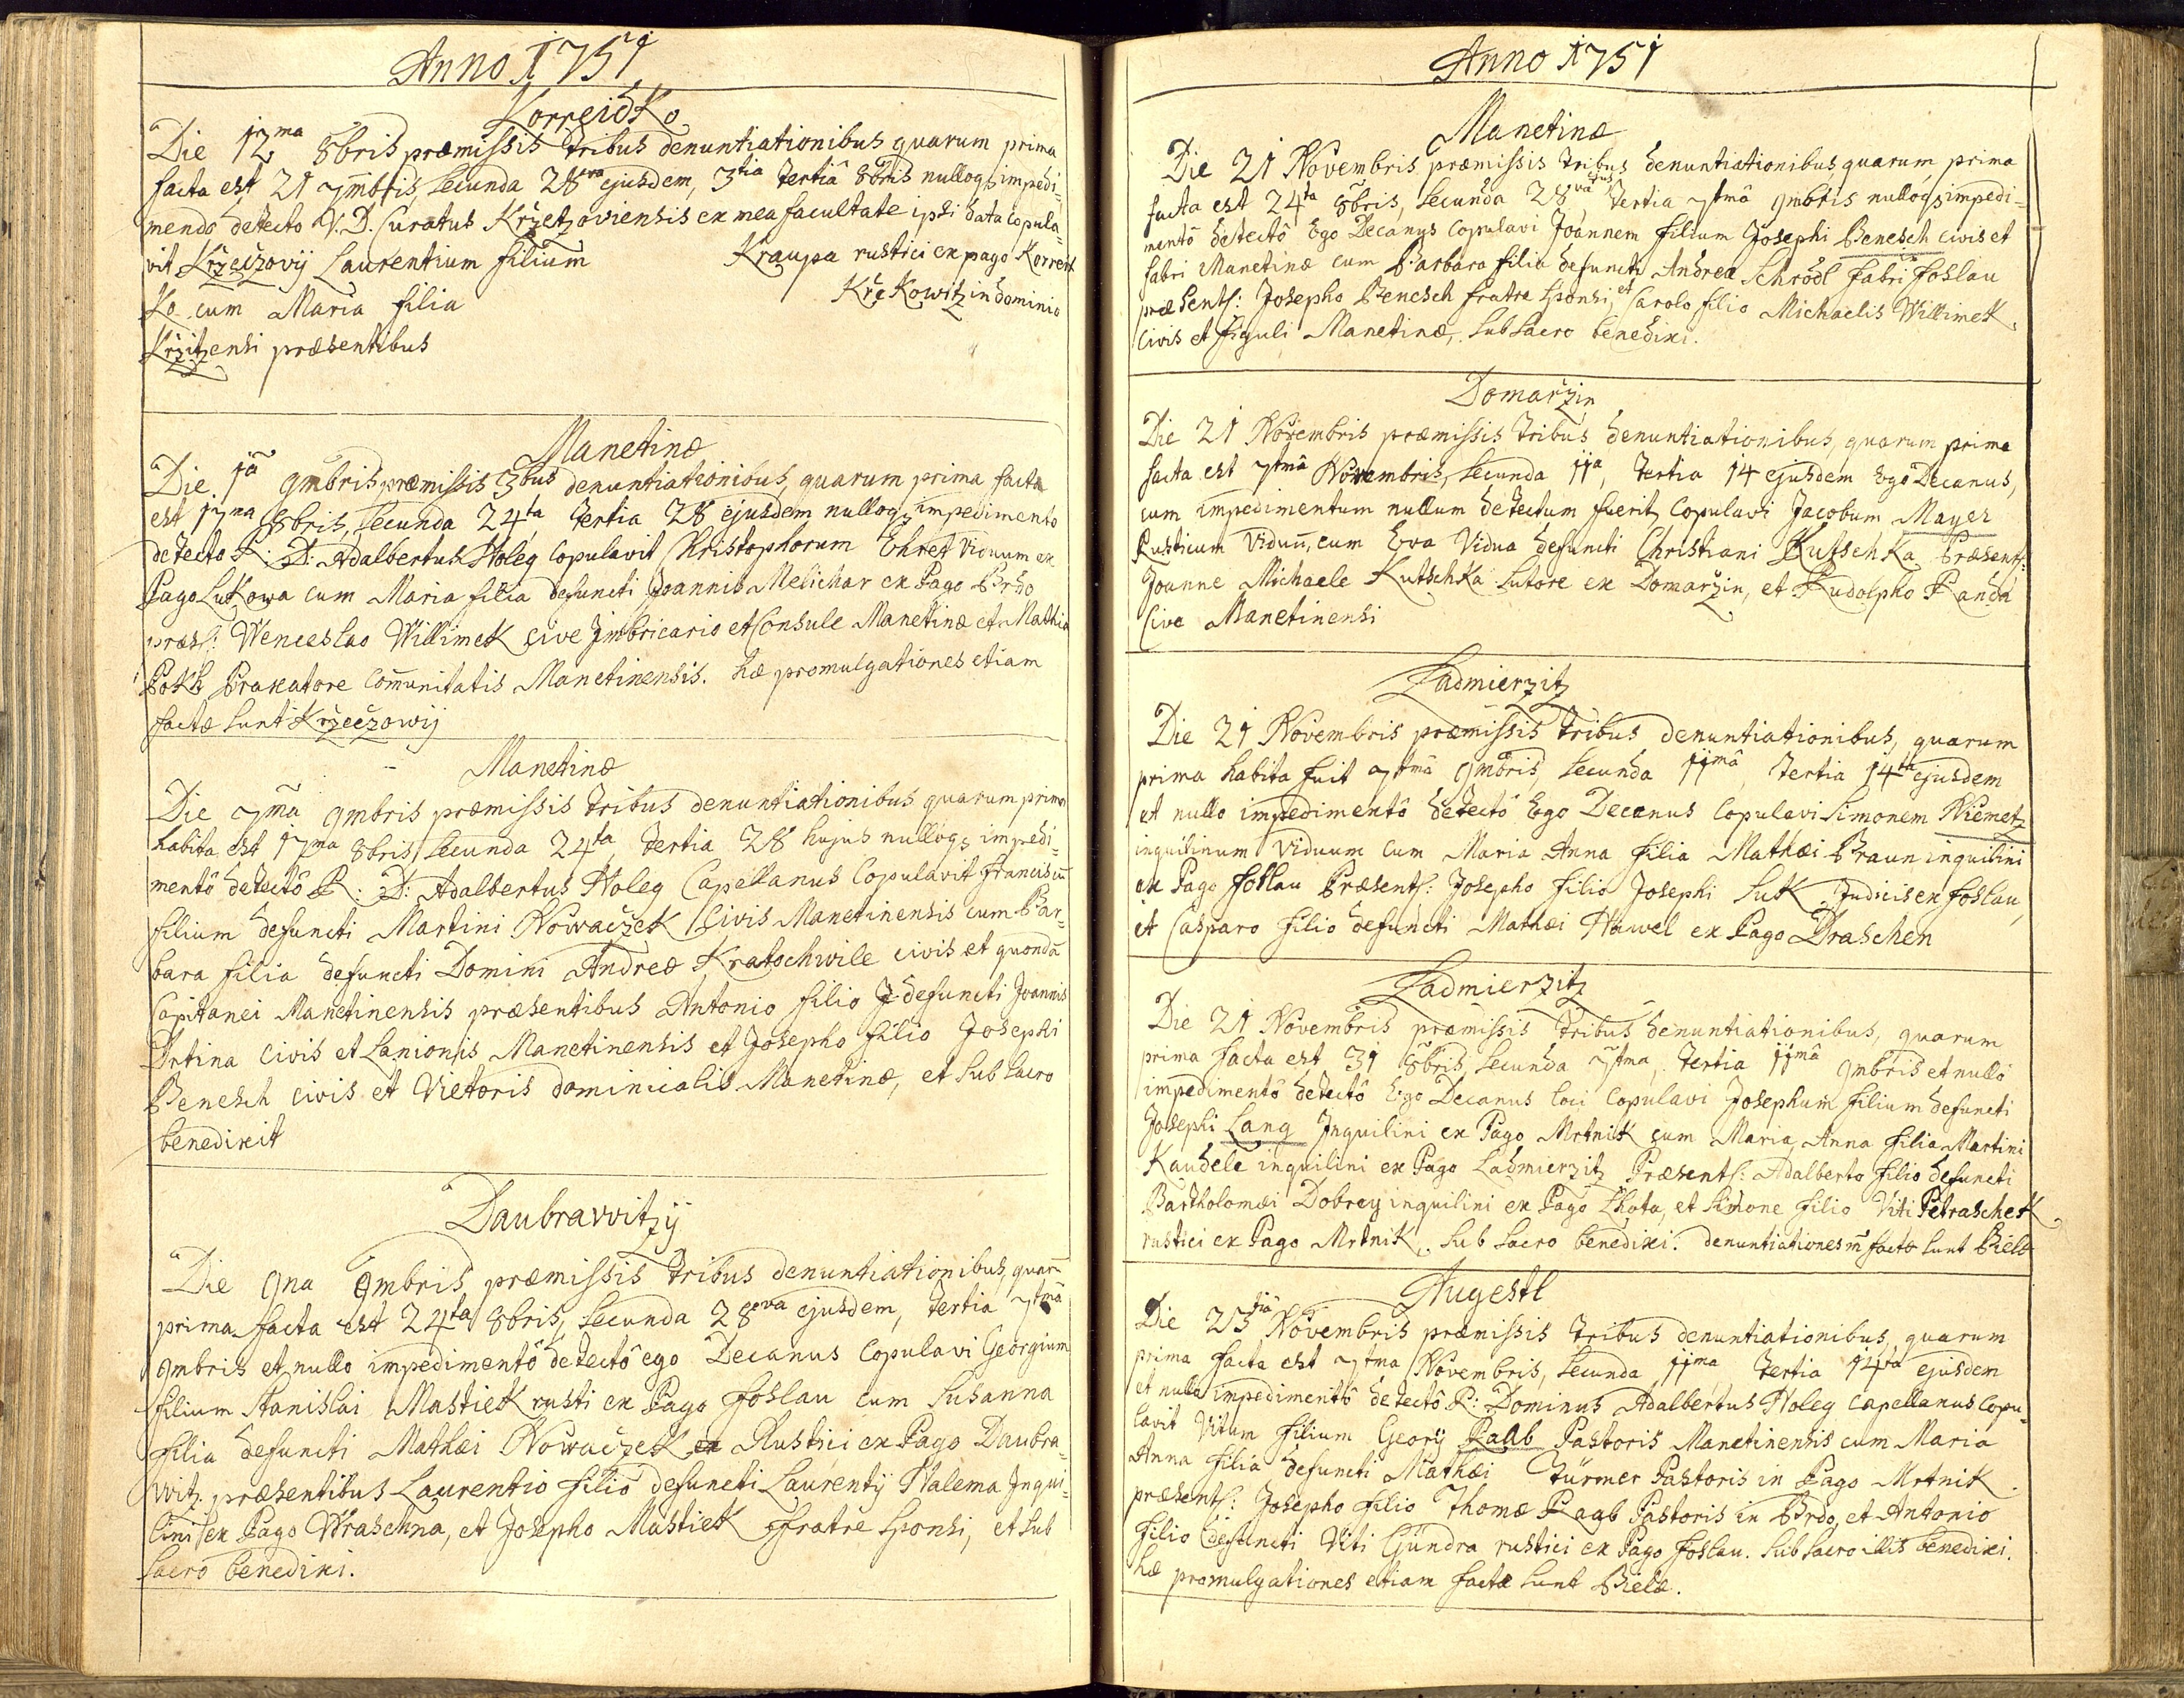 Anno 1751
Korreidko
Die 12ma 8bris præmissis tribus denuntiationibus quarum prima
facta est 21 7mbris, secunda 28va ejusdem, 3tia tertiâ 8bris nulloq3 impedi-
mendo detecto V. D. Curatus Kržetzoviensis ex mea facultate ipsi data copula-
vit Kržeczovij Laurentium filium Kraupa rustici ex pago Korreit
Ko cum Maria filia Křekowitz in dominio
Kržitzensi præsentibus
Manetinæ
Die 1a 9mbris præmissis 3bus denuntiationibus, quarum prima facta
est 17ma 8bris, secunda 24ta tertia 28 ejusdem nulloq3 impedimento
detecto R: D: Adalbertus Holeg copulavit Christophorum Ehret viduum ex
Pago Lukowa cum Maria filia defuncti Joannis Melichar ex Pago Brdo
præs: Wenceslao Willimek cive Imbricario et Consule Manetinæ et Mathia
Pokh Braxatore Com̄unitatis Manetinensis. hæ promulgationes etiam
factæ sunt Kržeežowij
Manetinæ
Die 7ma 9mbris præmissis tribus denuntiationibus quarum prima
habita est 17ma 8bris secunda 24ta tertia 28 hujus nulloq3 impedi-
mentô detectô R: D: Adalbertus Holeg Capellanus Copulavit Franciscū
filium defuncti Martini Nowaczek Civis Manetinensis cum Bar-
bara filia defuncti Domini Andreæ Kratochwile civis et quondā
Capitanei Manetinensis præsentibus Antonio filio J defuncti Joannis
Drtina civis et Lanionis Manetinensis et Josepho filio Josephi
Benesch civis et Vietoris dominicalis Manetinæ, et sub sacro
benedixit
Daubrawitzij
Die 9na 9mbris præmissis tribus denuntiationibus, quarū
prima facta est 24ta 8bris, secunda 28va ejusdem, tertia 7tmâ
9mbris et nullo impedimentô detectô ego Decanus Copulavi Georgium
filium Stanislai Mastiek rusti ex Pago Foslau cum Susanna
filia defuncti Mathæi Nowaczek ex Rustici ex Pago Daubra-
witz præsentibus Laurentio filio defuncti Laurentij Halema Inqui-
lini ex Pago Wraschna, et Josepho Mastiek fratre sponsi, et sub
sacro benedixi.
Anno 1751
Manetinæ
Die 21 Novembris præmissis tribus denuntiationibus, quarum prima
facta est 24ta 8bris, secunda 28va ejus tertia 7tmâ 9mbris nulloq3 impedi-
mentô detectô Ego Decanus Copulavi Joannem filium Josephi Benesch civis et
fabri Manetinæ cum Barbara filia defuncti Andreæ Schrödl fabri Foslau
præsent: Josepho Benesch fratre sponsi, et Carolo filio Michaelis Willimek
Civis et figuli Manetinæ, sub sacro benedixi.
Domaržin
Die 21 Novembris præmissis tribus denuntiationibus, quarum prima
facta est 7tmâ Novembris, secunda 11a, tertia 14 ejusdem Ego Decanus,
cum impedimentum nullum detectum fuerit, Copulavi Jacobum Mayer
Rusticum Viduū, cum Eva Vidua defuncti Christiani Kutschka Præsent:
Joanne Michaele Kutschka Sutore ex Domaržin, et Rudolpho Randa
Cive Manetinensi
Ladmierzitz
Die 21 Novembris præmissis tribus denuntiationibus, quarum
prima habita fuit 7tmâ 9mbris, secunda 11mâ, tertia 14ta ejusdem
et nullo impedimentô detectô Ego Decanus Copulavi Simonem Niemetz
inquilinum Viduum cum Maria Anna filia Mathæi Braun inquilini
ex Pago Foslau Præsent: Josepho filio Josephi Suk Judicis ex Foslau,
et Casparo filio defuncti Mathæi Hawel ex Pago Draschen
Ladmierzitz
Die 21 Novembris præmissis tribus denuntiationibus, quarum
prima facta est 31 8bris, secunda 7tma, tertia 11mâ 9mbris et nullô
impedimentô detectô Ego Decanus loci Copulavi Josephum filium defuncti
Josephi Lang Inquilini ex Pago Mrtnik cum Maria Anna filia Martini
Kaudele inquilini ex Pago Ladmierzitz Præsent: Adalberto filio defuncti
Bartholomæi Dobrey inquilini ex Pago Lhota, et Simone filio Viti Petraschek
rustici ex Pago Mrtnik. Sub sacro benedixi. denuntiationes m̄ factæ sunt Bielæ
Augestl
Die 23tiâ Novembris præmissis tribus denuntiationibus, quarum
prima facta est 7tma Novembris, secunda 11ma, tertia 14ta ejusdem
et nullo impedimentô detectô R: Dominus Adalbertus Holeg Capellanus copu-
lavit Vitum filium Georij Raab Pastoris Manetinensis cum Maria
Anna filia defuncti Mathæi Türmer Pastoris in Pago Mrtnik.
præsent: Josepho filio Thomæ Raab Pastoris in Brdo, et Antonio
filio defuncti Viti Gündra rustici ex Pago Foslau. Sub sacro illis benedixi.
hæ promulgationes etiam factæ sunt Bielæ.